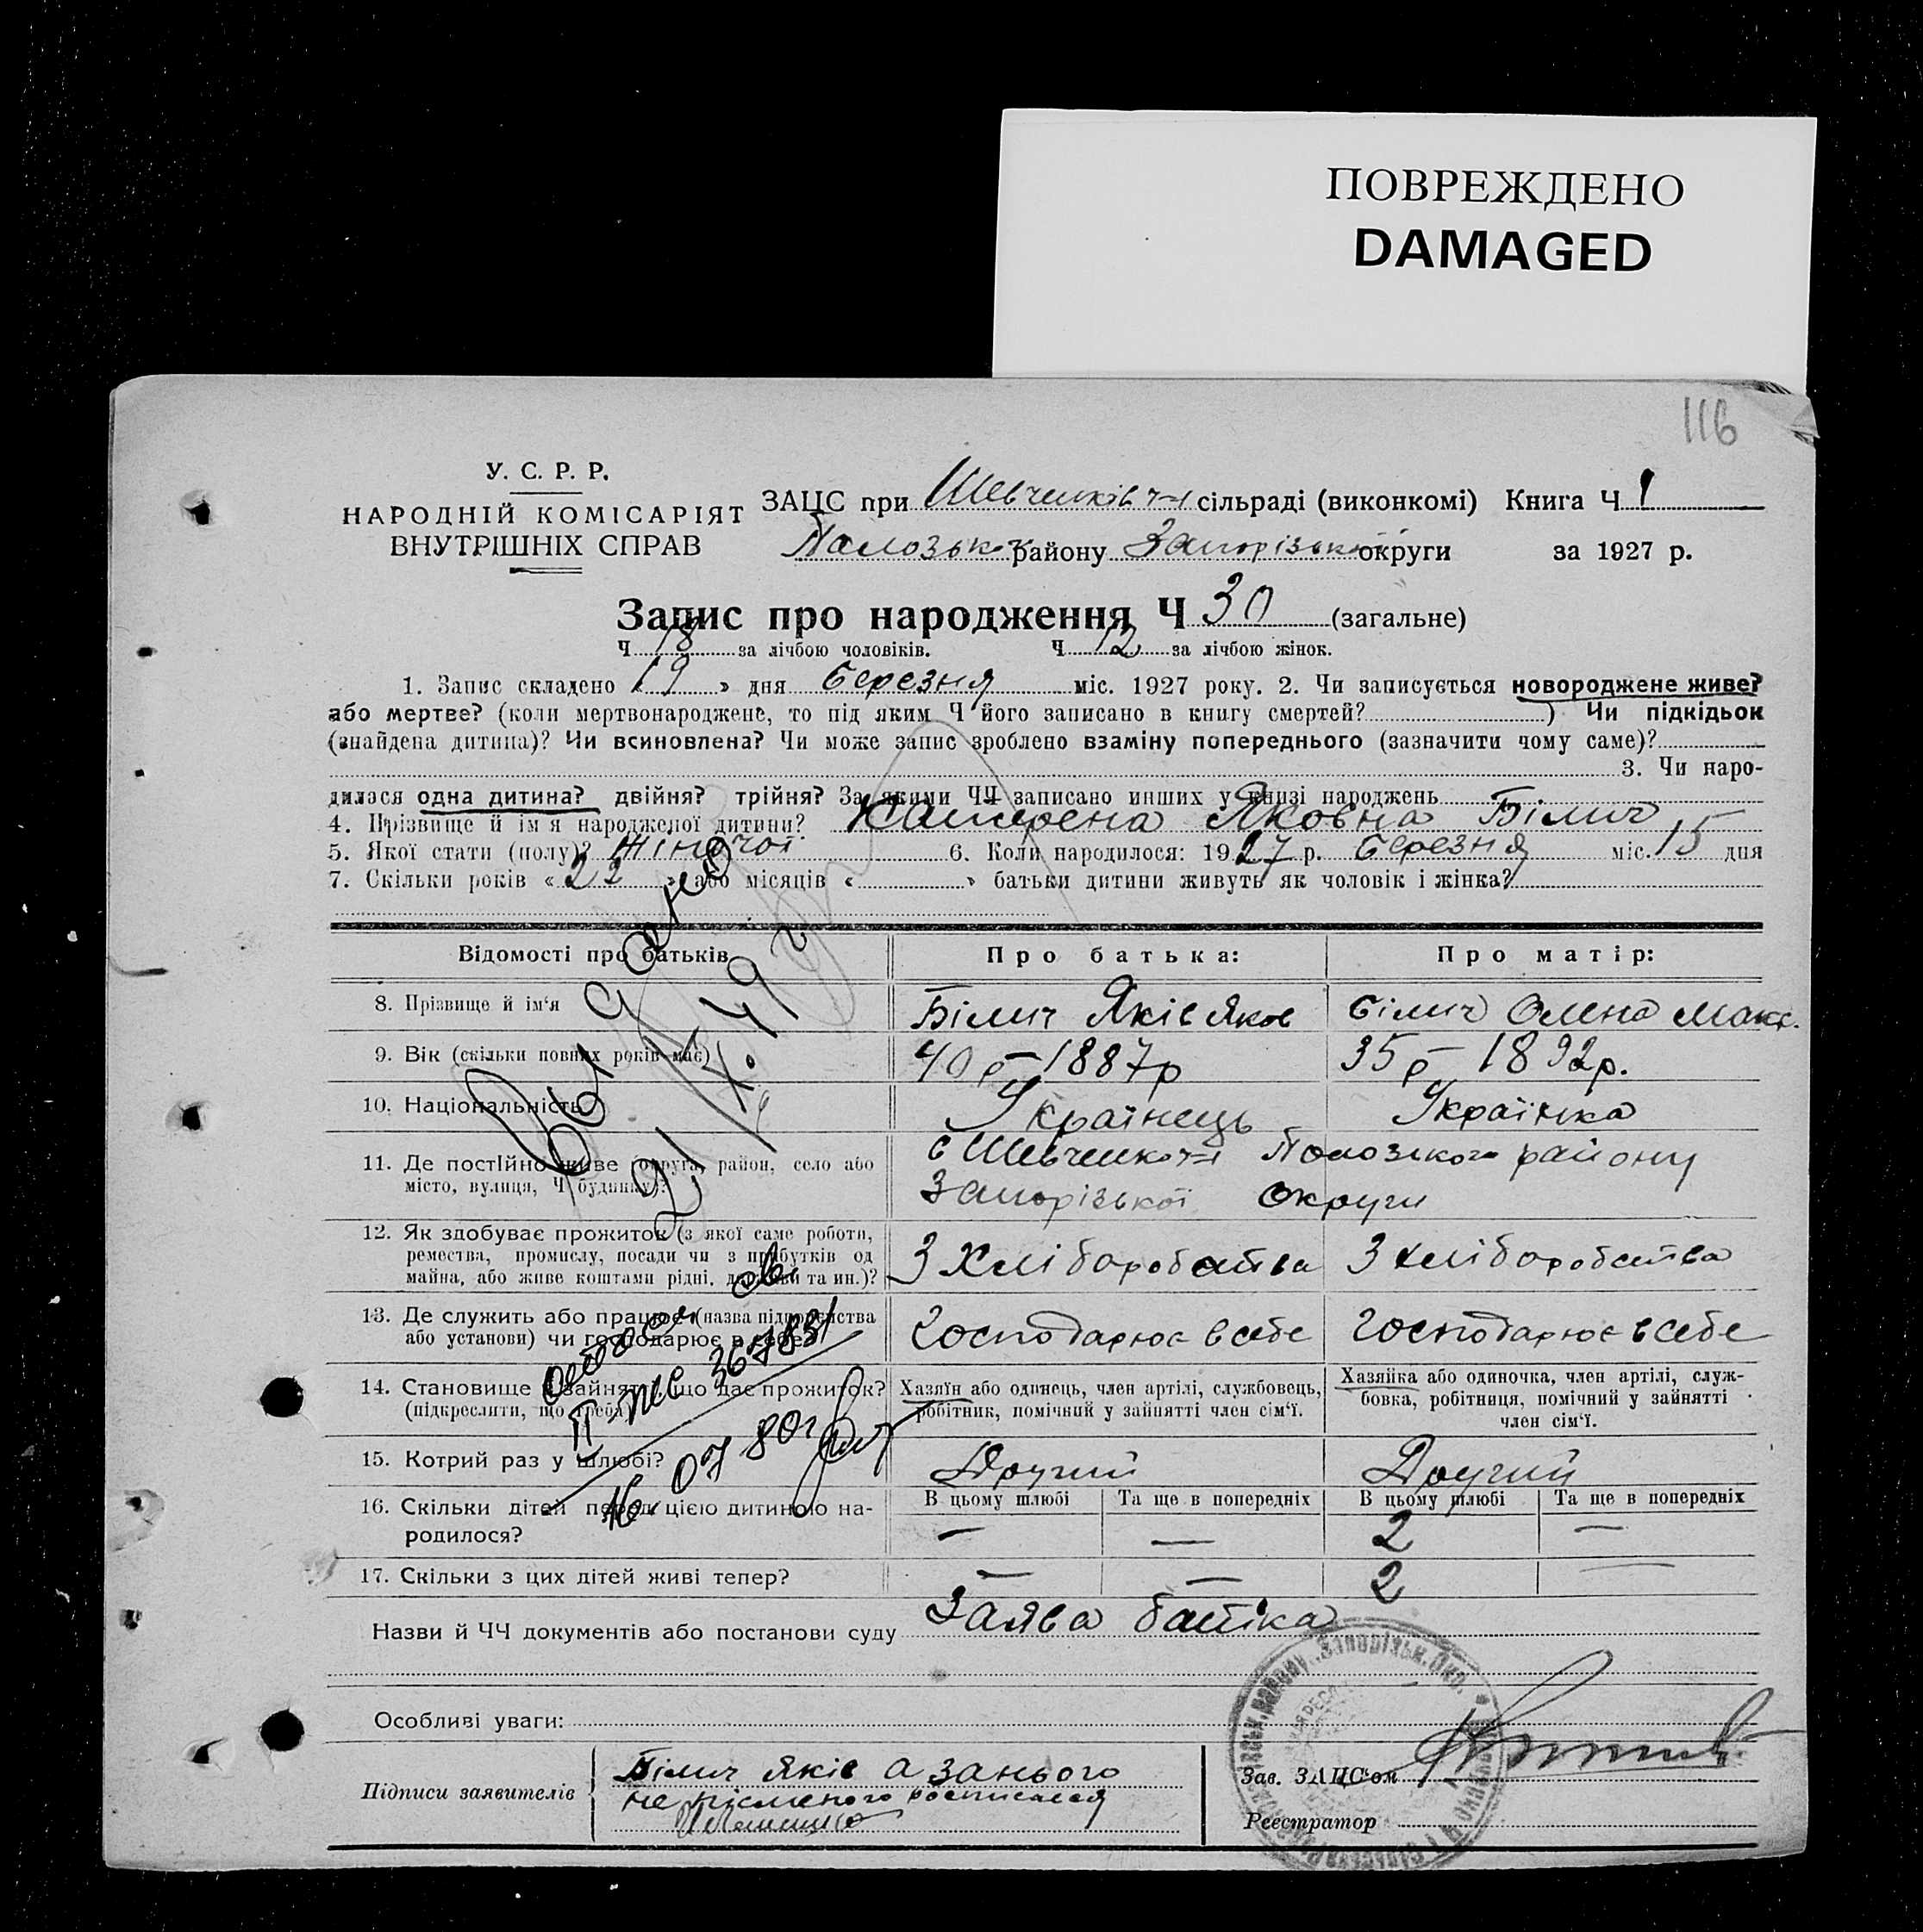 ПОВРЕЖДЕНО
DAMAGED
116
У. С. Р. Р.
НАРОДНІЙ КОМІСАРІЯТ
ВНУТРІШНІХ СПРАВ
ЗАЦС при Шевченків сільраді (виконкомі) Книга Ч 1
району Запорізької округи за 1927 р.
Запис про народження Ч 30 (загальне)
Ч 18 за лічбою чоловіків. Ч 12 за лічбою жінок.
1. Запис складено « 19 » дня березня міс. 1927 року. 2. Чи записується новороджене живе?
або мертве? (коли мертвонароджене, то під яким Ч його записано в книгу смертей? ) Чи підкідьок
(знайдена дитина)? Чи всиновлена? Чи може запис зроблено взаміну попереднього (зазначити чому саме)?
3. Чи наро-
дилася одна дитина? двійня? трійня? За якими ЧЧ записано инших у книзі народжень
4. Прізвище й ім'я народженої дитини? Катерена Яковна Білич
5. Якої стати (полу)? жіночої 6. Коли народилося: 1927 р. березня міс. 15 дня
7. Скільки років « 22 » або місяців « » батьки дитини живуть як чоловік і жінка?
Відомості про батьків Про батька: Про матір:
8. Прізвище й ім'я Білич Яків Яков Біліч Олена Макс.
9. Вік (скільки повних років має) 40 р 1887р 35 р 1892р.
10. Національність Українець Українка
11. Де постійно живе (округа, район, село або
місто, вулиця, Ч будинку)?
с Шевченко Положского району
Запорізької округи
12. Як здобуває прожиток (з якої саме роботи,
ремества, промислу, посади чи з прибутків од
майна, або живе коштами рідні, держави та ин.)?
З хліборобства З хліборобства
13. Де служить або працює (назва підприємства
або установи) чи господарює в себе?
Господарює в себе Господарює в себе
14. Становище в занятті, що дає прожиток?
(підкреслити, що треба)
Хазяїн або одинець, член артілі, службовець,
робітник, помічний у зайнятті член сім'ї.
Хазяйка або одиночка, член артілі, служ-
бовка, робітниця, помічний у зайнятті
член сім'ї.
15. Котрий раз у шлюбі? Другий Другий
16. Скільки дітей перед цією дитиною на-
родилося?
В цьому шлюбі Та ще в попередніх В цьому шлюбі Та ще в попередніх
— — 2 —
17. Скільки з цих дітей живі тепер? — — 2 —
Назви й ЧЧ документів або постанови суду Заява батька
Особливі уваги:
Підписи заявителів
Біліч Яків а за нього
не пісьменого росписался
Зав. ЗАЦС'ом
Реєстратор
Выдано
21/X.49 г
II-ЖС 367831
16 07 80г